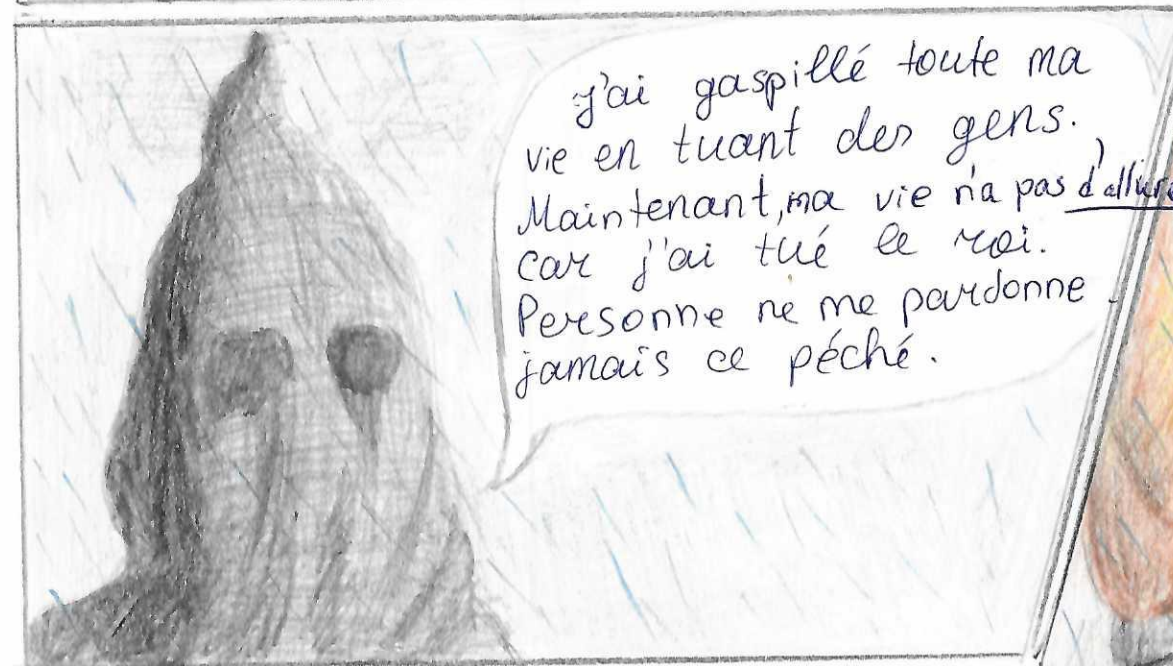 j'ai gaspillé toute ma
vie en tuant des gens.
Maintenant, ma vie n'a pas d'allure,
car j'ai tué le roi.
Personne ne me pardonne
jamais ce péché.